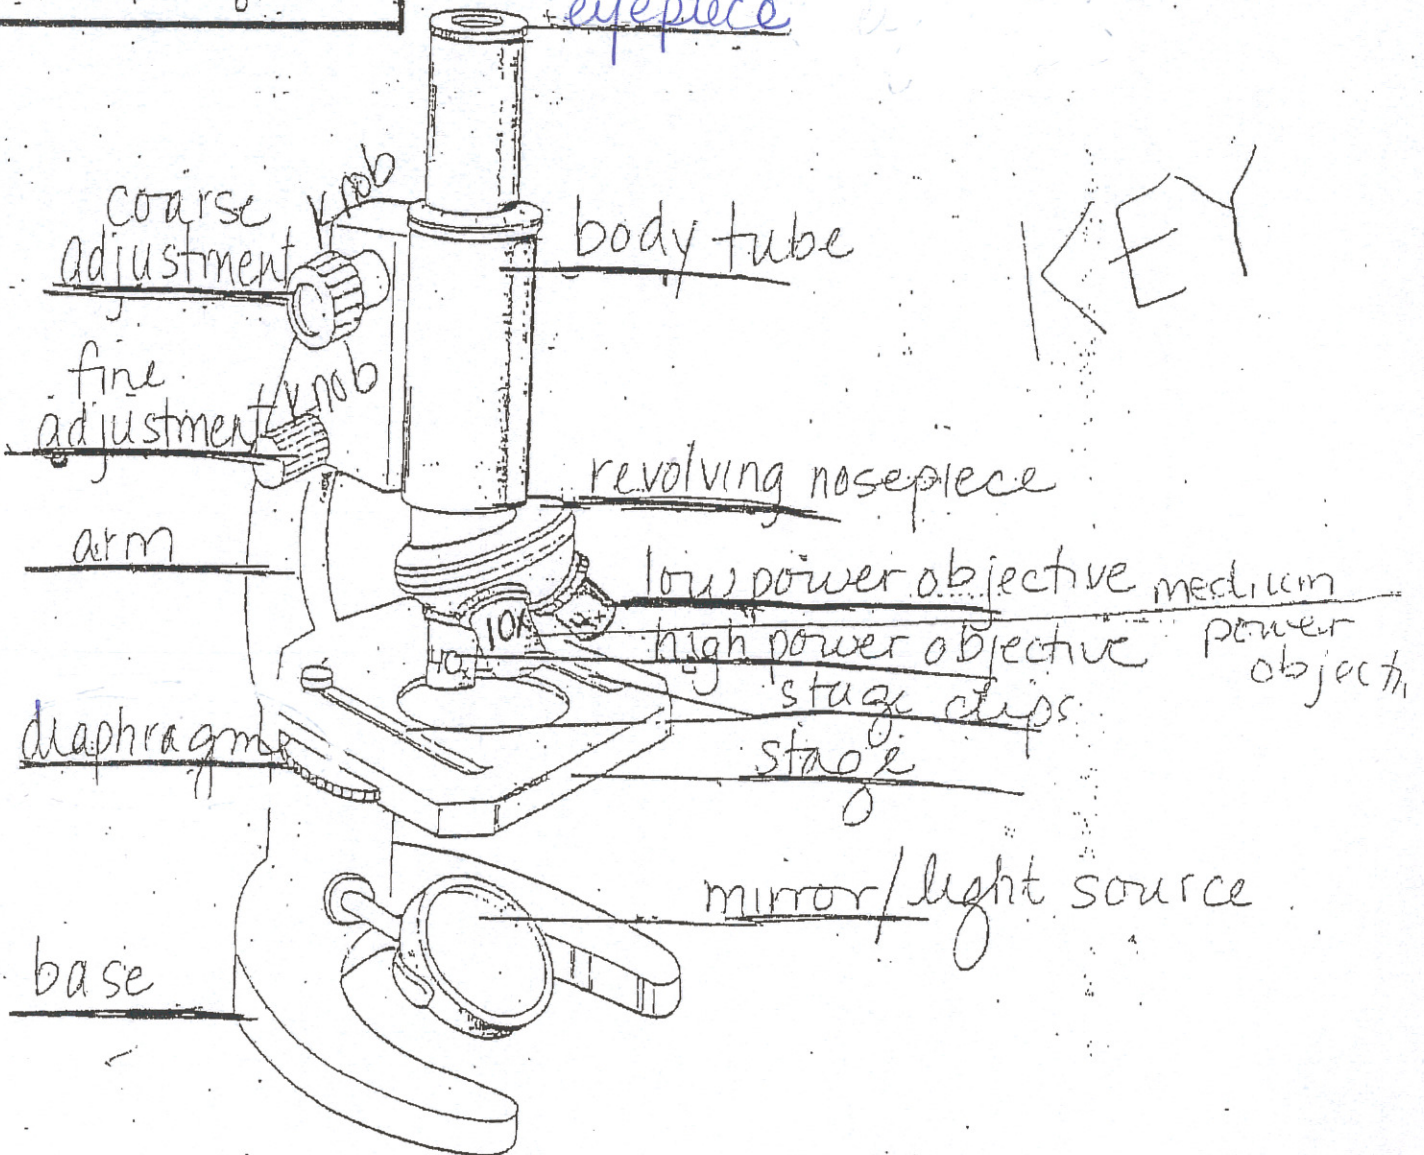 eyepiece
KEY
coarse
adjustment knob
body tube
fine
adjustment knob
revolving nosepiece
arm
low power objective
medium
power
10x
4x
high power objective
stage clips
diaphragm
stage
mirror/light source
base